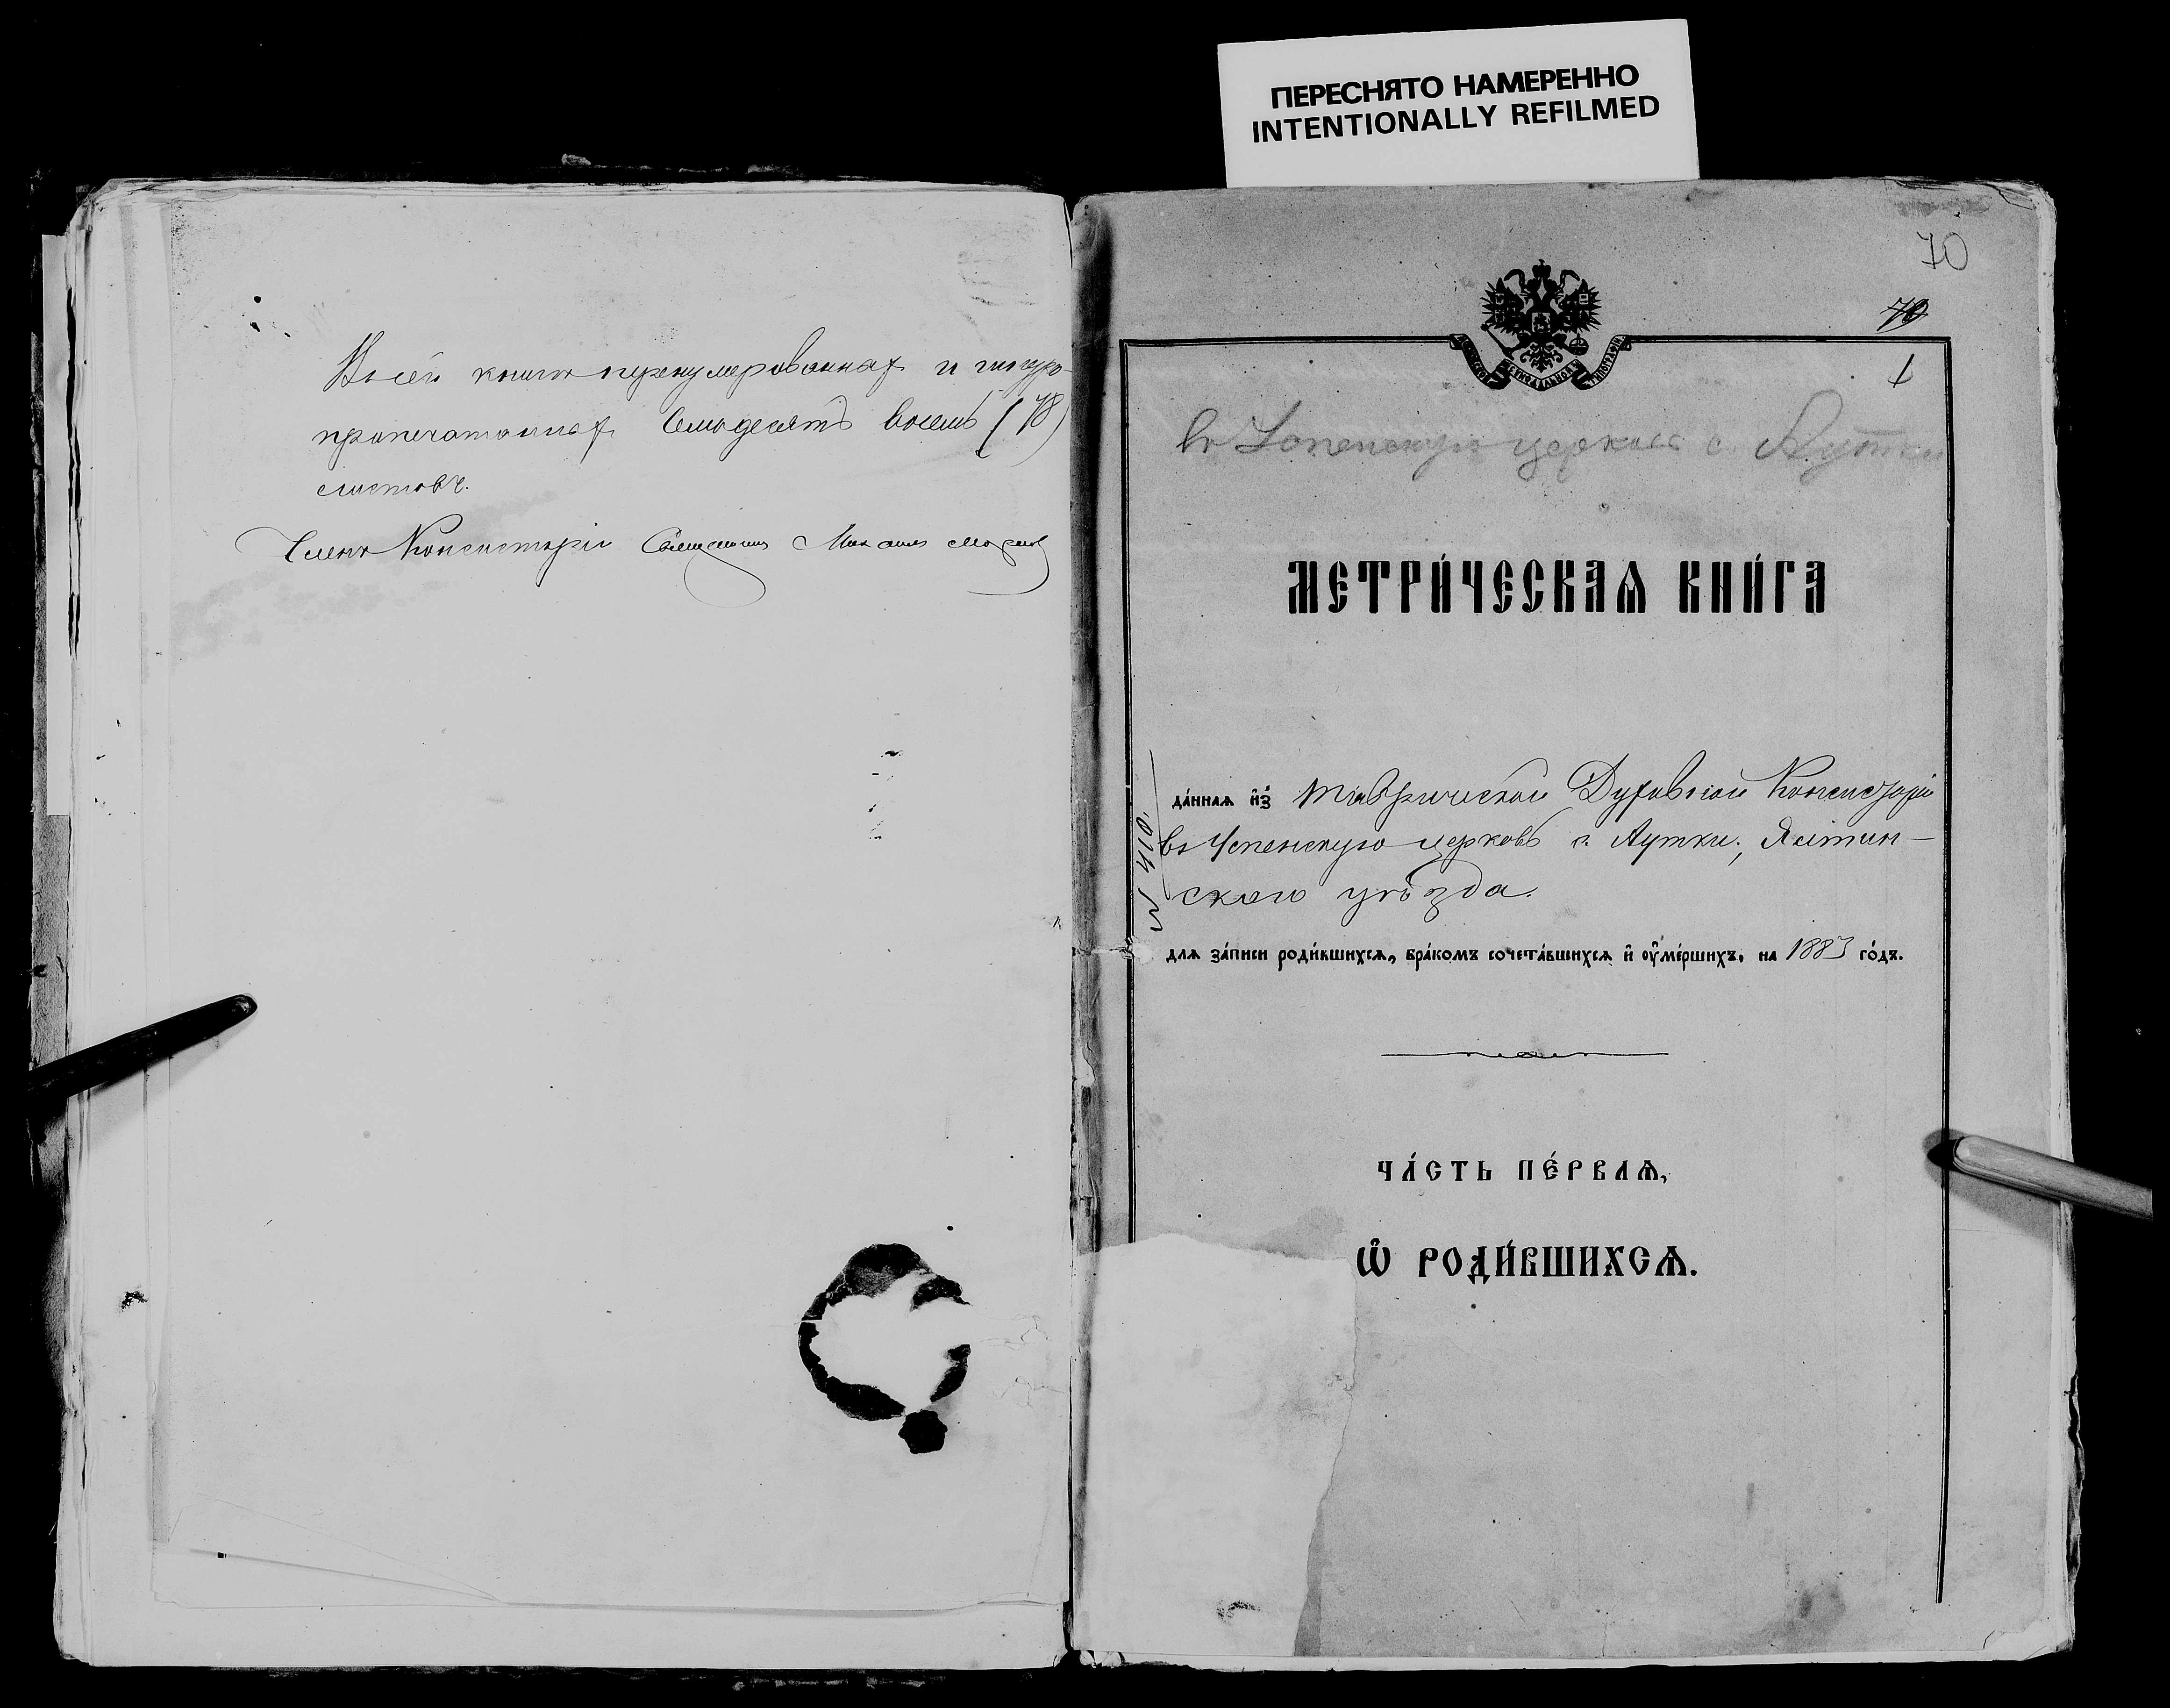 ПЕРЕСНЯТО НАМЕРЕННО
INTENTIONALLY REFILMED
Въ сей книгѣ перенумерованнах и шнуро-
припечатаннах семьдесятъ восемь (78)
листовъ.
Членъ Консисторіи Священникъ Михаилъ
70
70
1
МОСКОВСКОЙ СѴНОДАЛЬНОЙ ТИПОГРАФІИ
въ Успенскую церковь с. Аутки
МЕТРИ́ЧЕСКАѦ КНИ́ГА
да́ннаѧ и҆з̾ Таврической Духовной Консисторіи
въ Успенскую церковь с. Аутки, Ялтин-
скаго уѣзда.
для за́писи роди́вшихсѧ, бра́комъ сочета́вшихсѧ и҆ оу҆ме́ршихъ, на 1883 го́дъ.
ЧА́СТЬ ПЕ́РВАѦ,
Ѽ РОДИ́ВШИХСѦ.